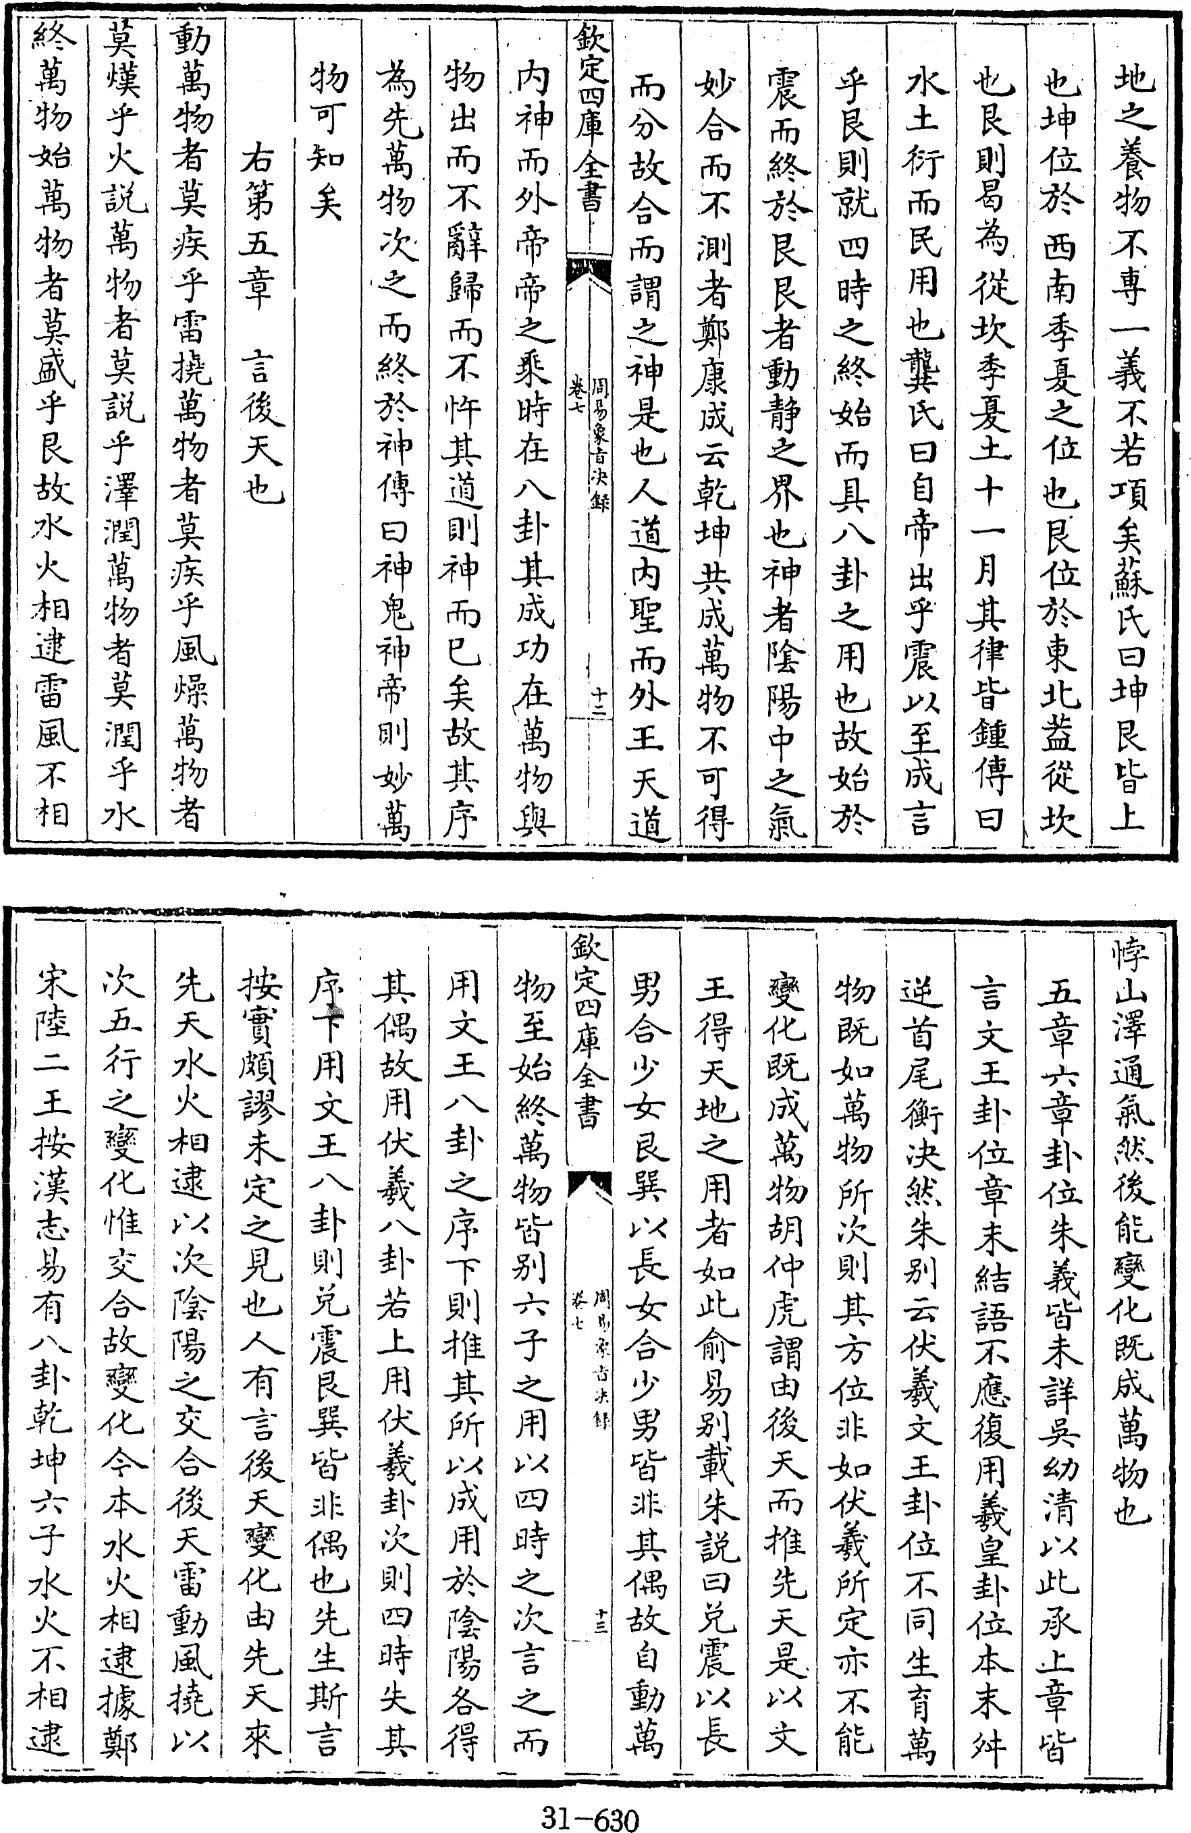 地之養物不專一義不若項矣蘇氏曰坤艮皆上
也坤位於西南季夏之位也艮位於東北葢從坎
也艮則曷為從坎季夏土十一月其律皆鍾傳曰
水土衍而民用也龔氏曰自帝出乎震以至成言
乎艮則就四時之終始而具八卦之用也故始於
震而終於艮艮者動靜之界也神者陰陽中之氣
妙合而不測者鄭康成云乾坤共成萬物不可得
而分故合而謂之神是也人道内聖而外王天道
欽定四庫全書
周易象旨决録
卷七
十二
内神而外帝帝之乘時在八卦其成功在萬物與
物出而不辭歸而不忤其道則神而已矣故其序
為先萬物次之而終於神傳曰神鬼神帝則妙萬
物可知矣
右第五章 言後天也
動萬物者莫疾乎雷撓萬物者莫疾乎風燥萬物者
莫熯乎火説萬物者莫説乎澤潤萬物者莫潤乎水
終萬物始萬物者莫盛乎艮故水火相逮雷風不相
悖山澤通氣然後能變化既成萬物也
五章六章卦位朱義皆未詳吳幼清以此承上章皆
言文王卦位章末結語不應復用羲皇卦位本末舛
逆首尾衡决然朱别云伏羲文王卦位不同生育萬
物既如萬物所次則其方位非如伏羲所定亦不能
變化既成萬物胡仲虎謂由後天而推先天是以文
王得天地之用者如此俞易别載朱説曰兌震以長
男合少女艮巽以長女合少男皆非其偶故自動萬
欽定四庫全書
周易象旨决録
卷七
十三
物至始終萬物皆别六子之用以四時之次言之而
用文王八卦之序下則推其所以成用於陰陽各得
其偶故用伏羲八卦若上用伏羲卦次則四時失其
序下用文王八卦則兌震艮巽皆非偶也先生斯言
按實頗謬未定之見也人有言後天變化由先天來
先天水火相逮以次陰陽之交合後天雷動風撓以
次五行之變化惟交合故變化今本水火相逮據鄭
宋陸二王按漢志易有八卦乾坤六子水火不相逮
31-630